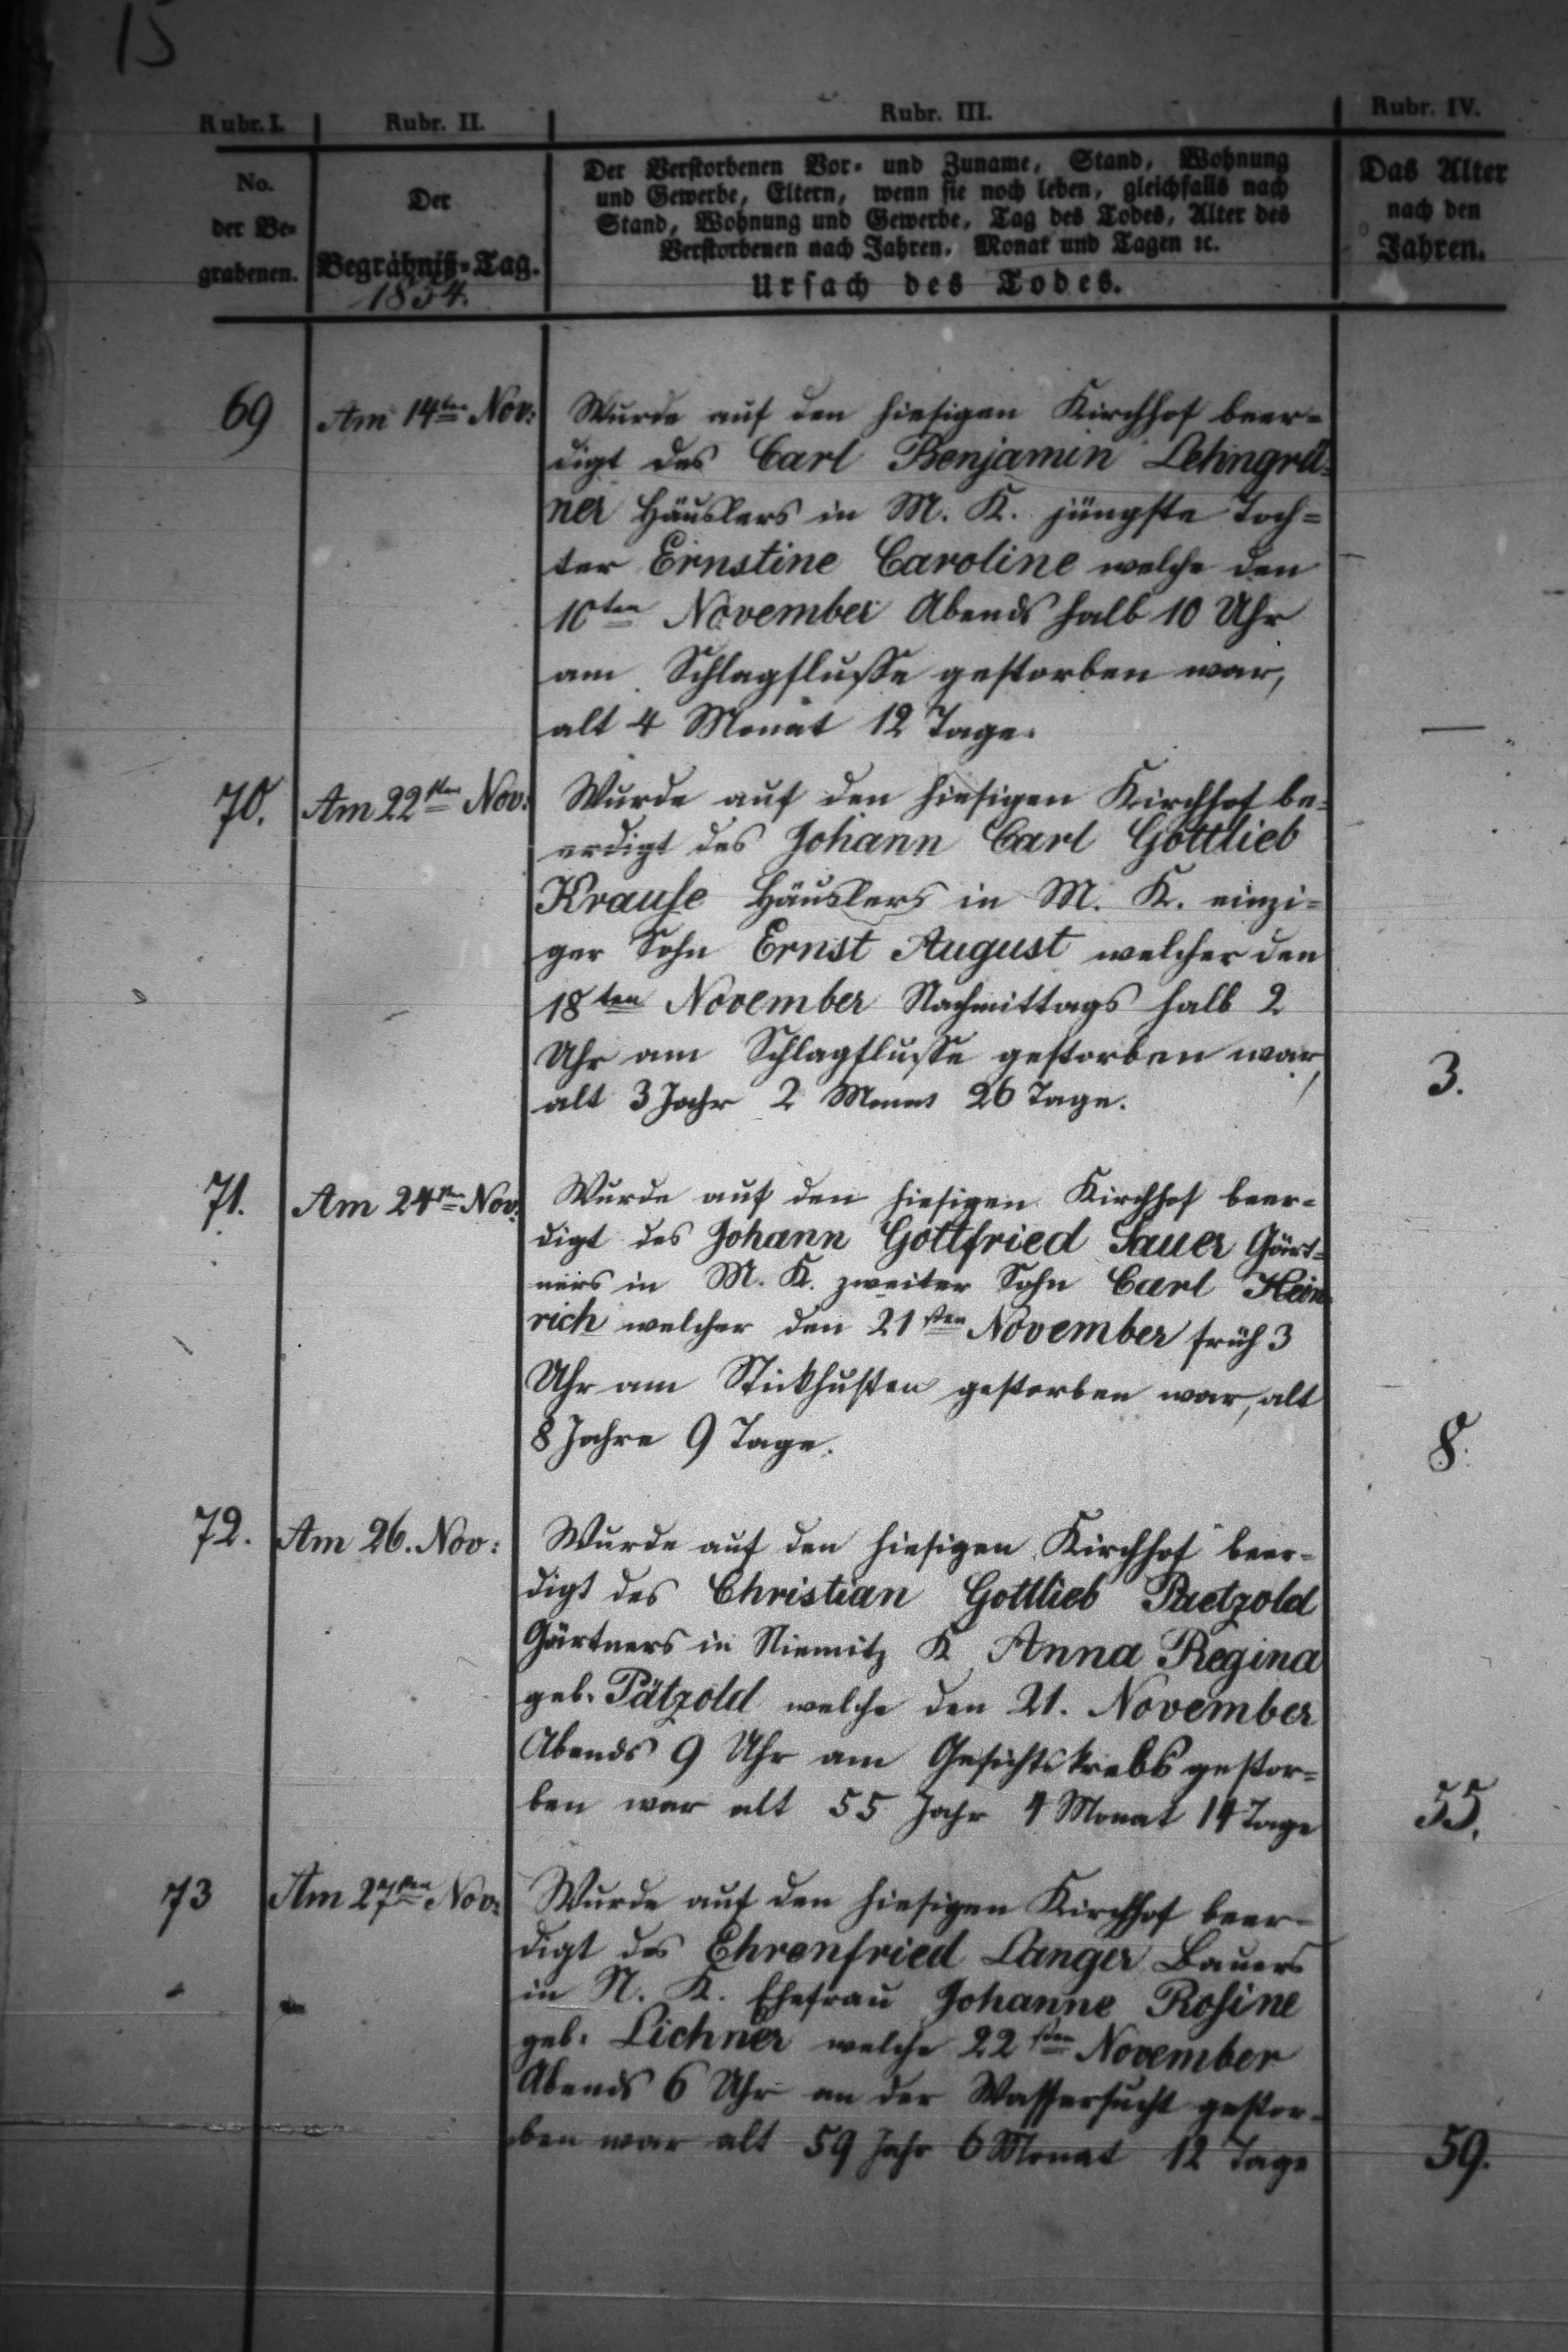 15
Rubr. I. Rubr. II. Rubr. III. Rubr. IV.
No. der Be-grabenen.
Der Begräbniß-Tag.
1854.
Der Verstorbenen Vor- und Zuname, Stand, Wohnung
und Gewerbe, Eltern, wenn sie noch leben, gleichfalls nach
Stand, Wohnung und Gewerbe, Tag des Todes, Alter des
Verstorbenen nach Jahren, Monat und Tagen ꝛc.
Ursach des Todes.
Das Alter
nach den
Jahren.
69 Am 14ten Nov: Wurde auf den hiesigen Kirchhof beer-
digt des Carl Benjamin Lehngrü-
ner Häuslers in M. K. jüngste Toch-
ter Ernstine Caroline welche den
10ten November Abends halb 10 Uhr
am Schlagflusse gestorben war,
alt 4 Monat 12 Tage. —
70. Am 22sten Nov: Wurde auf den hiesigen Kirchhof be-
erdigt des Johann Carl Gottlieb
Krause Häuslers in M. K. einzi-
ger Sohn Ernst August welcher den
18ten November Nachmittags halb 2
Uhr am Schlagflusse gestorben war,
alt 3 Jahr 2 Monat 26 Tage. 3.
71. Am 24sten Nov: Wurde auf den hiesigen Kirchhof beer-
digt des Johann Gottfried Sauer Gärt-
ners in M. K. zweiter Sohn Carl Hein-
rich welcher den 21sten November früh 3
Uhr am Stickhusten gestorben war, alt
8 Jahre 9 Tage. 8.
72. Am 26. Nov: Wurde auf den hiesigen Kirchhof beer-
digt des Christian Gottlieb Paetzold
Gärtners in Niemitz K Anna Regina
geb. Pätzold welche den 21. November
Abends 9 Uhr am Gesichtskrebs gestor-
ben war alt 55 Jahr 4 Monat 14 Tage 55.
73 Am 27sten Nov: Wurde auf den hiesigen Kirchhof beer-
digt des Ehrenfried Langer Bauers
in N. K. Ehefrau Johanne Rosine
geb. Lichner welche 22sten November
Abends 6 Uhr an der Wassersucht gestor-
ben war alt 59 Jahr 6 Monat 12 Tage 59.